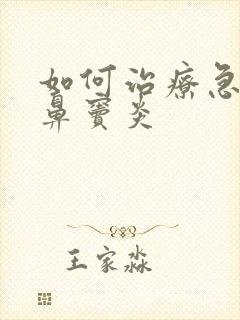 如何治疗急
鼻窦炎
王家淼